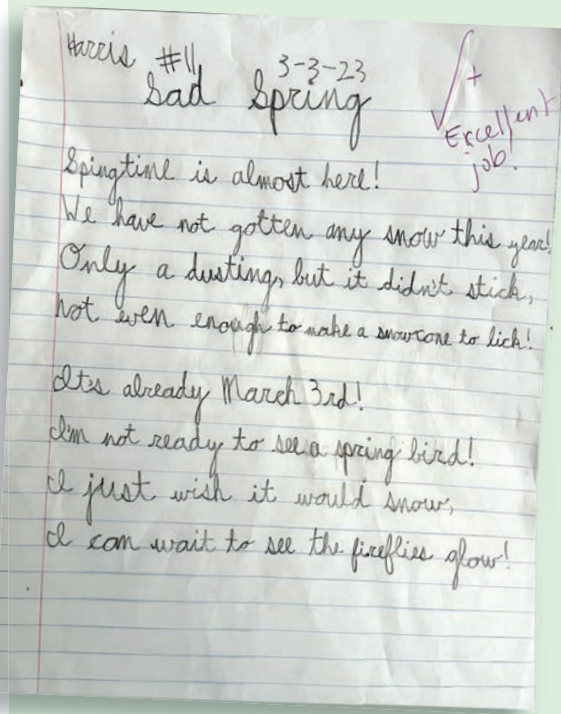 Harris #11 3-3-23
Sad Spring
✓+
Excellent
job!
Spingtime is almost here!
We have not gotten any snow this year!
Only a dusting, but it didn't stick,
not even enough to make a snowcone to lick!
It's already March 3rd!
I'm not ready to see a spring bird!
I just wish it would snow,
I can wait to see the fireflies glow!